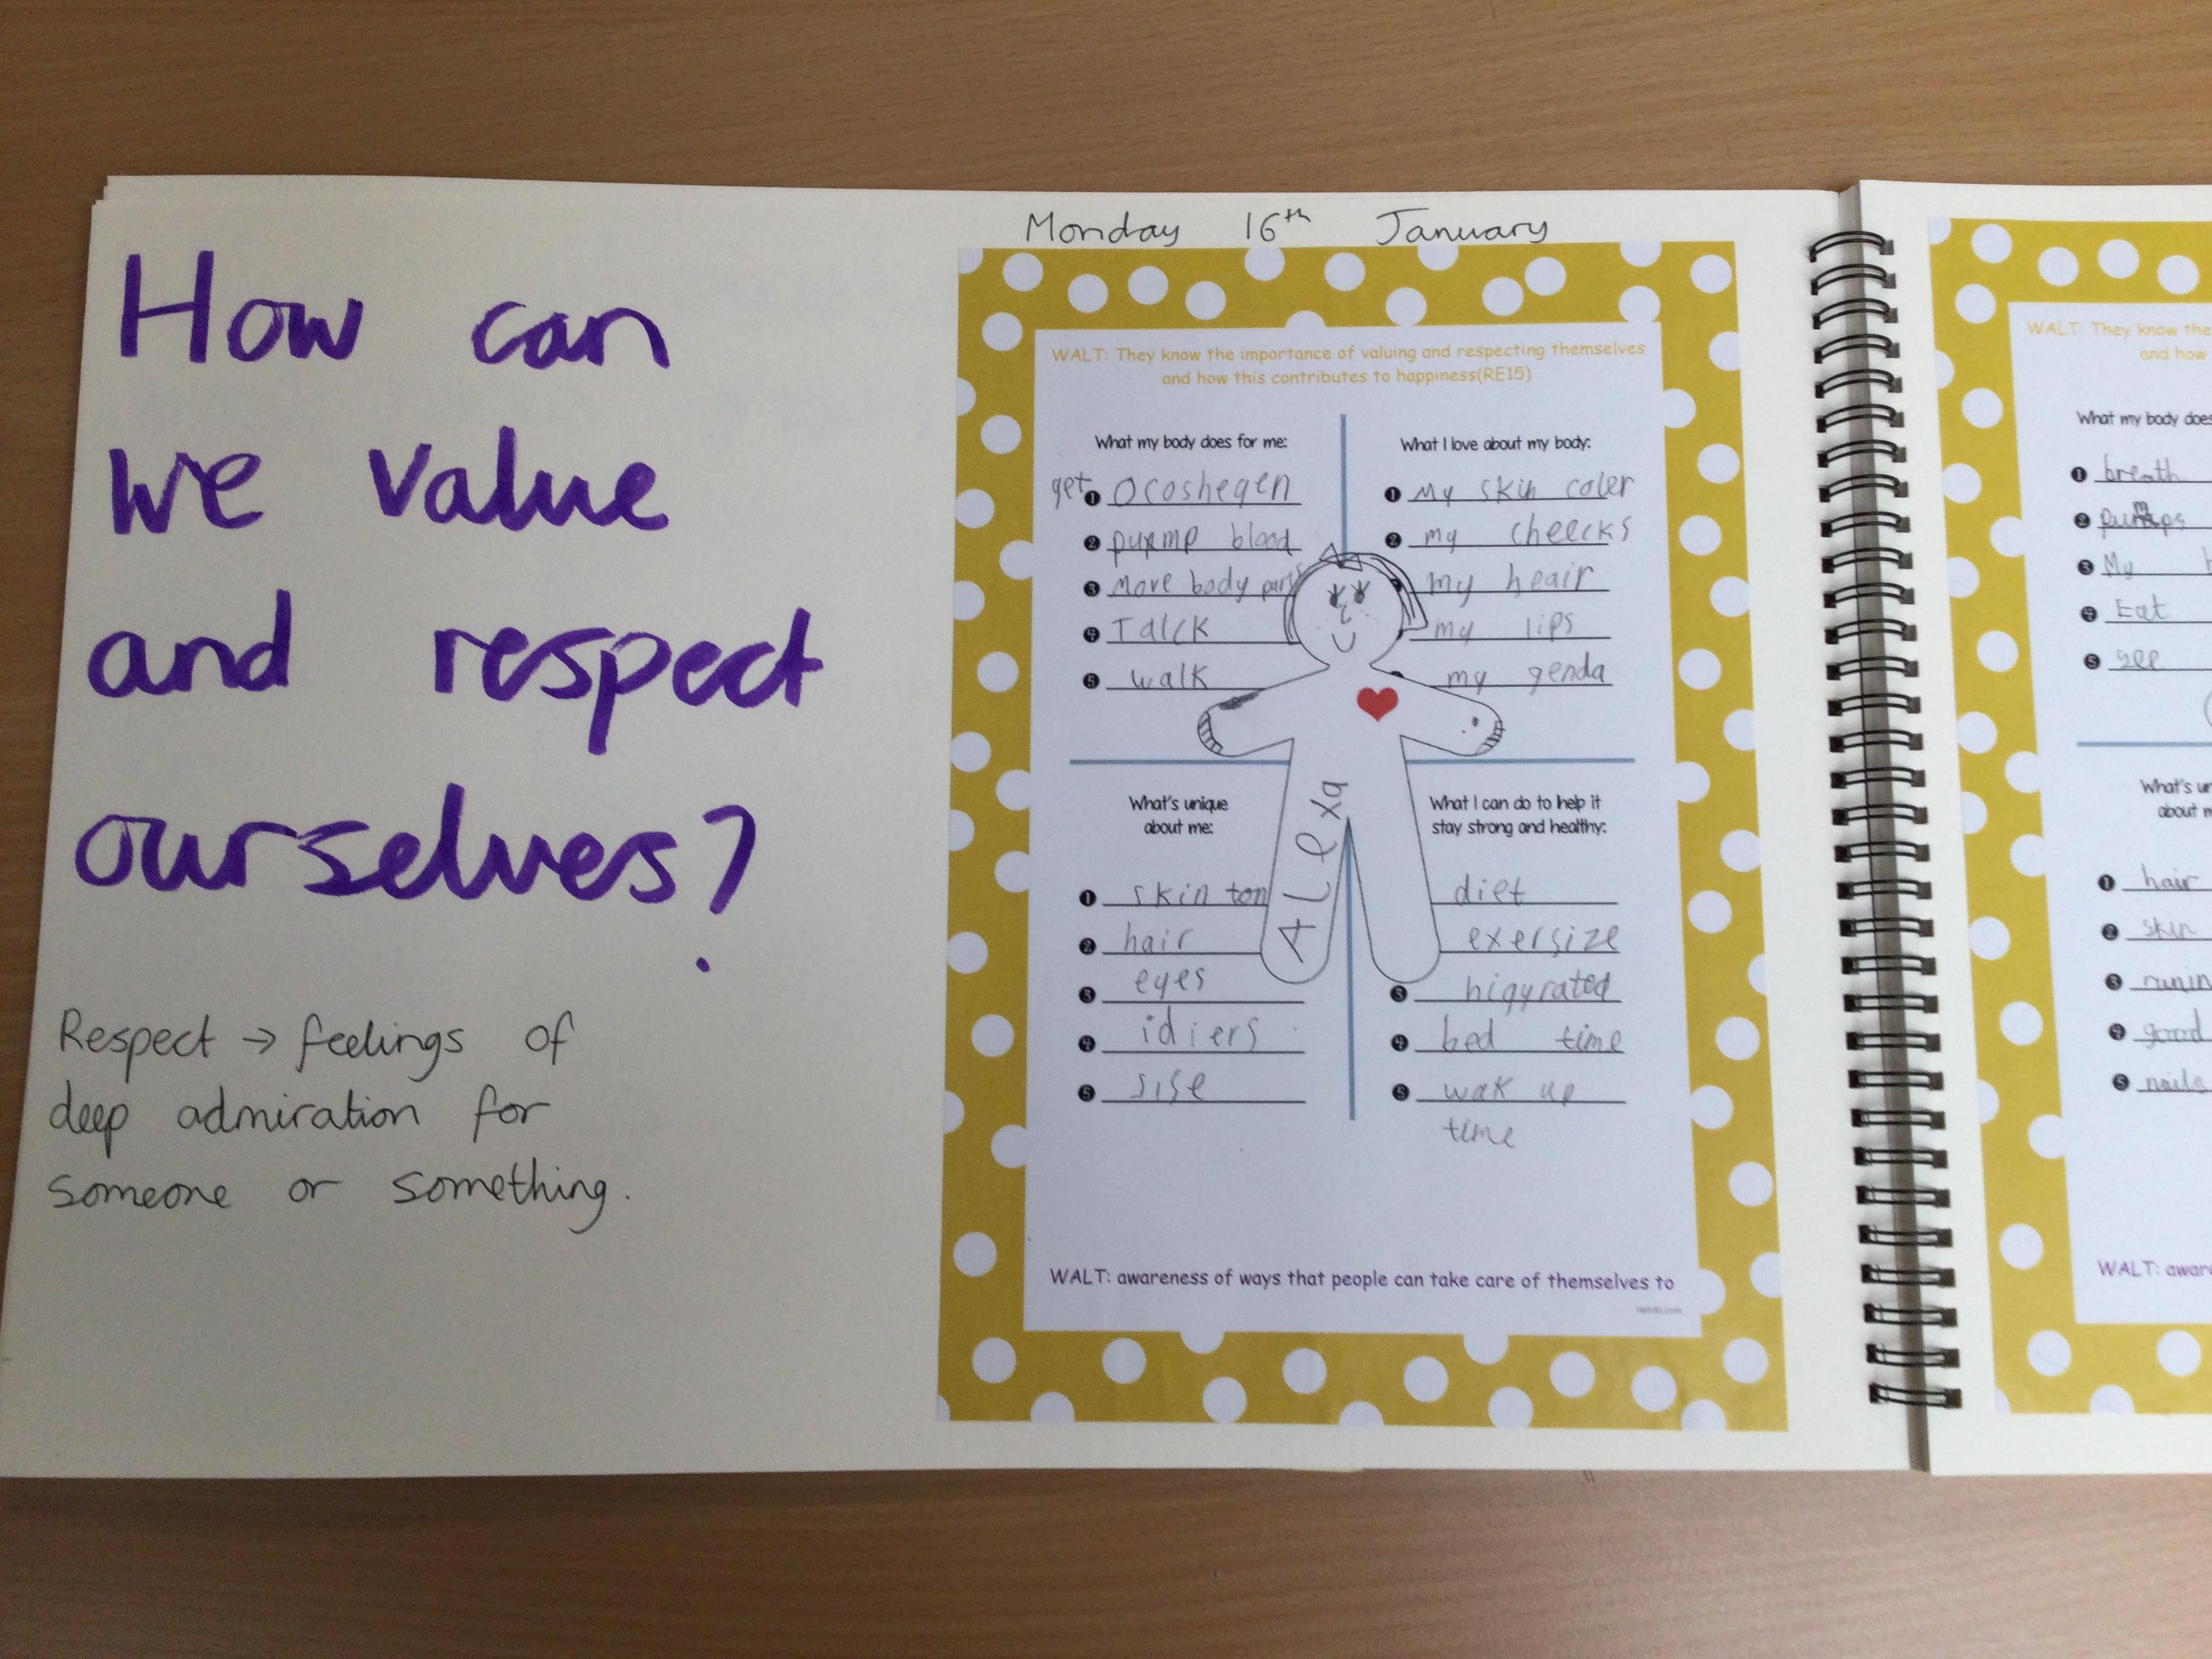 How can
we value
and respect
ourselves?
Respect → feelings of
deep admiration for
someone or something.
Monday 16th January
WALT: They know the importance of valuing and respecting themselves
and how this contributes to happiness(RE15)
What my body does for me:
get
1 Ocoshegen
2 puxmp blood
3 Move body parts
4 Talck
5 walk
What I love about my body:
1 My skin coler
2 my cheecks
my heair
my lips
my genda
What's unique
about me:
1 skin ton
2 hair
3 eyes
4 idiers
5 sise
What I can do to help it
stay strong and healthy:
diet
exersize
3 higyrated
4 bed time
5 wak up
time
ALexa
WALT: awareness of ways that people can take care of themselves to
twinkl.com
WALT: They know the
and how
What my body does
1 breath
2 pumps
3 My
4 Eat
5 see
What's un
about m
1 hair
2 skin
3 runin
4 good
5 nails
WALT: aware